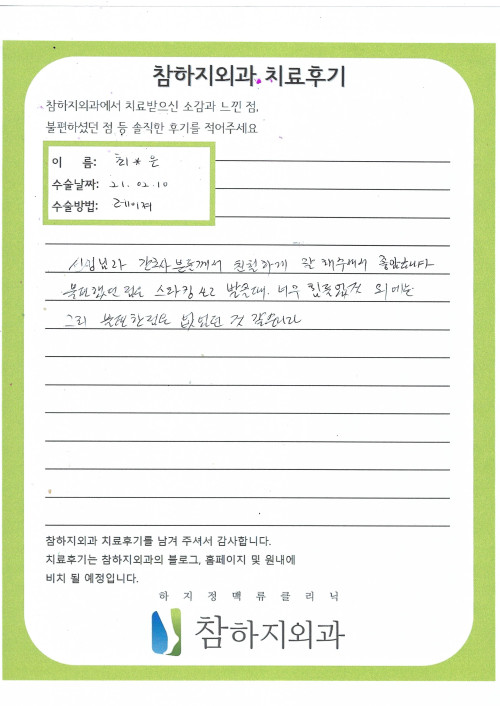 참하지외과 치료후기
참하지외과에서 치료받으신 소감과 느낀 점,
불편하셨던 점 등 솔직한 후기를 적어주세요
이 름: 최*은
수술날짜: 21. 02. 10
수술방법: 레이져
간호사분들께서 친절하게 잘 해주셔서 좋았습니다
불편했던 점은 스타킹 신고 벗을때. 너무 힘들었던 것 외에는
그리 불편한점은 없었던 것 같습니다
참하지외과 치료후기를 남겨 주셔서 감사합니다.
치료후기는 참하지외과의 블로그, 홈페이지 및 원내에
비치 될 예정입니다.
하지정맥류클리닉
참하지외과